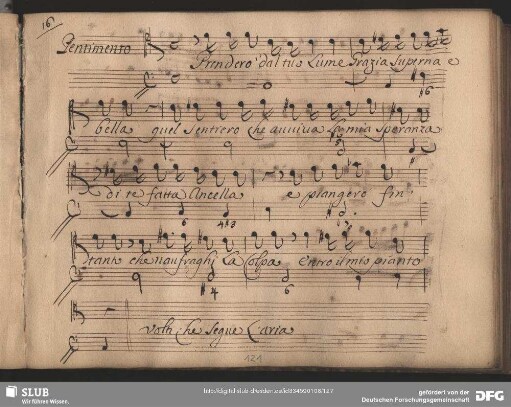 16
Pentimento
Prendero dal tuo Lume Grazia superna e
6
bella quel sentiero che auuiua La mia speranza
e di te fatta Ancella e piangero fin
6 4 3
tanto che naufraghi La Colpa entro il mio pianto
4 6
volti che segue L'aria
121
SLUB
Wir führen Wissen.
gefördert von der
Deutschen Forschungsgemeinschaft
DFG